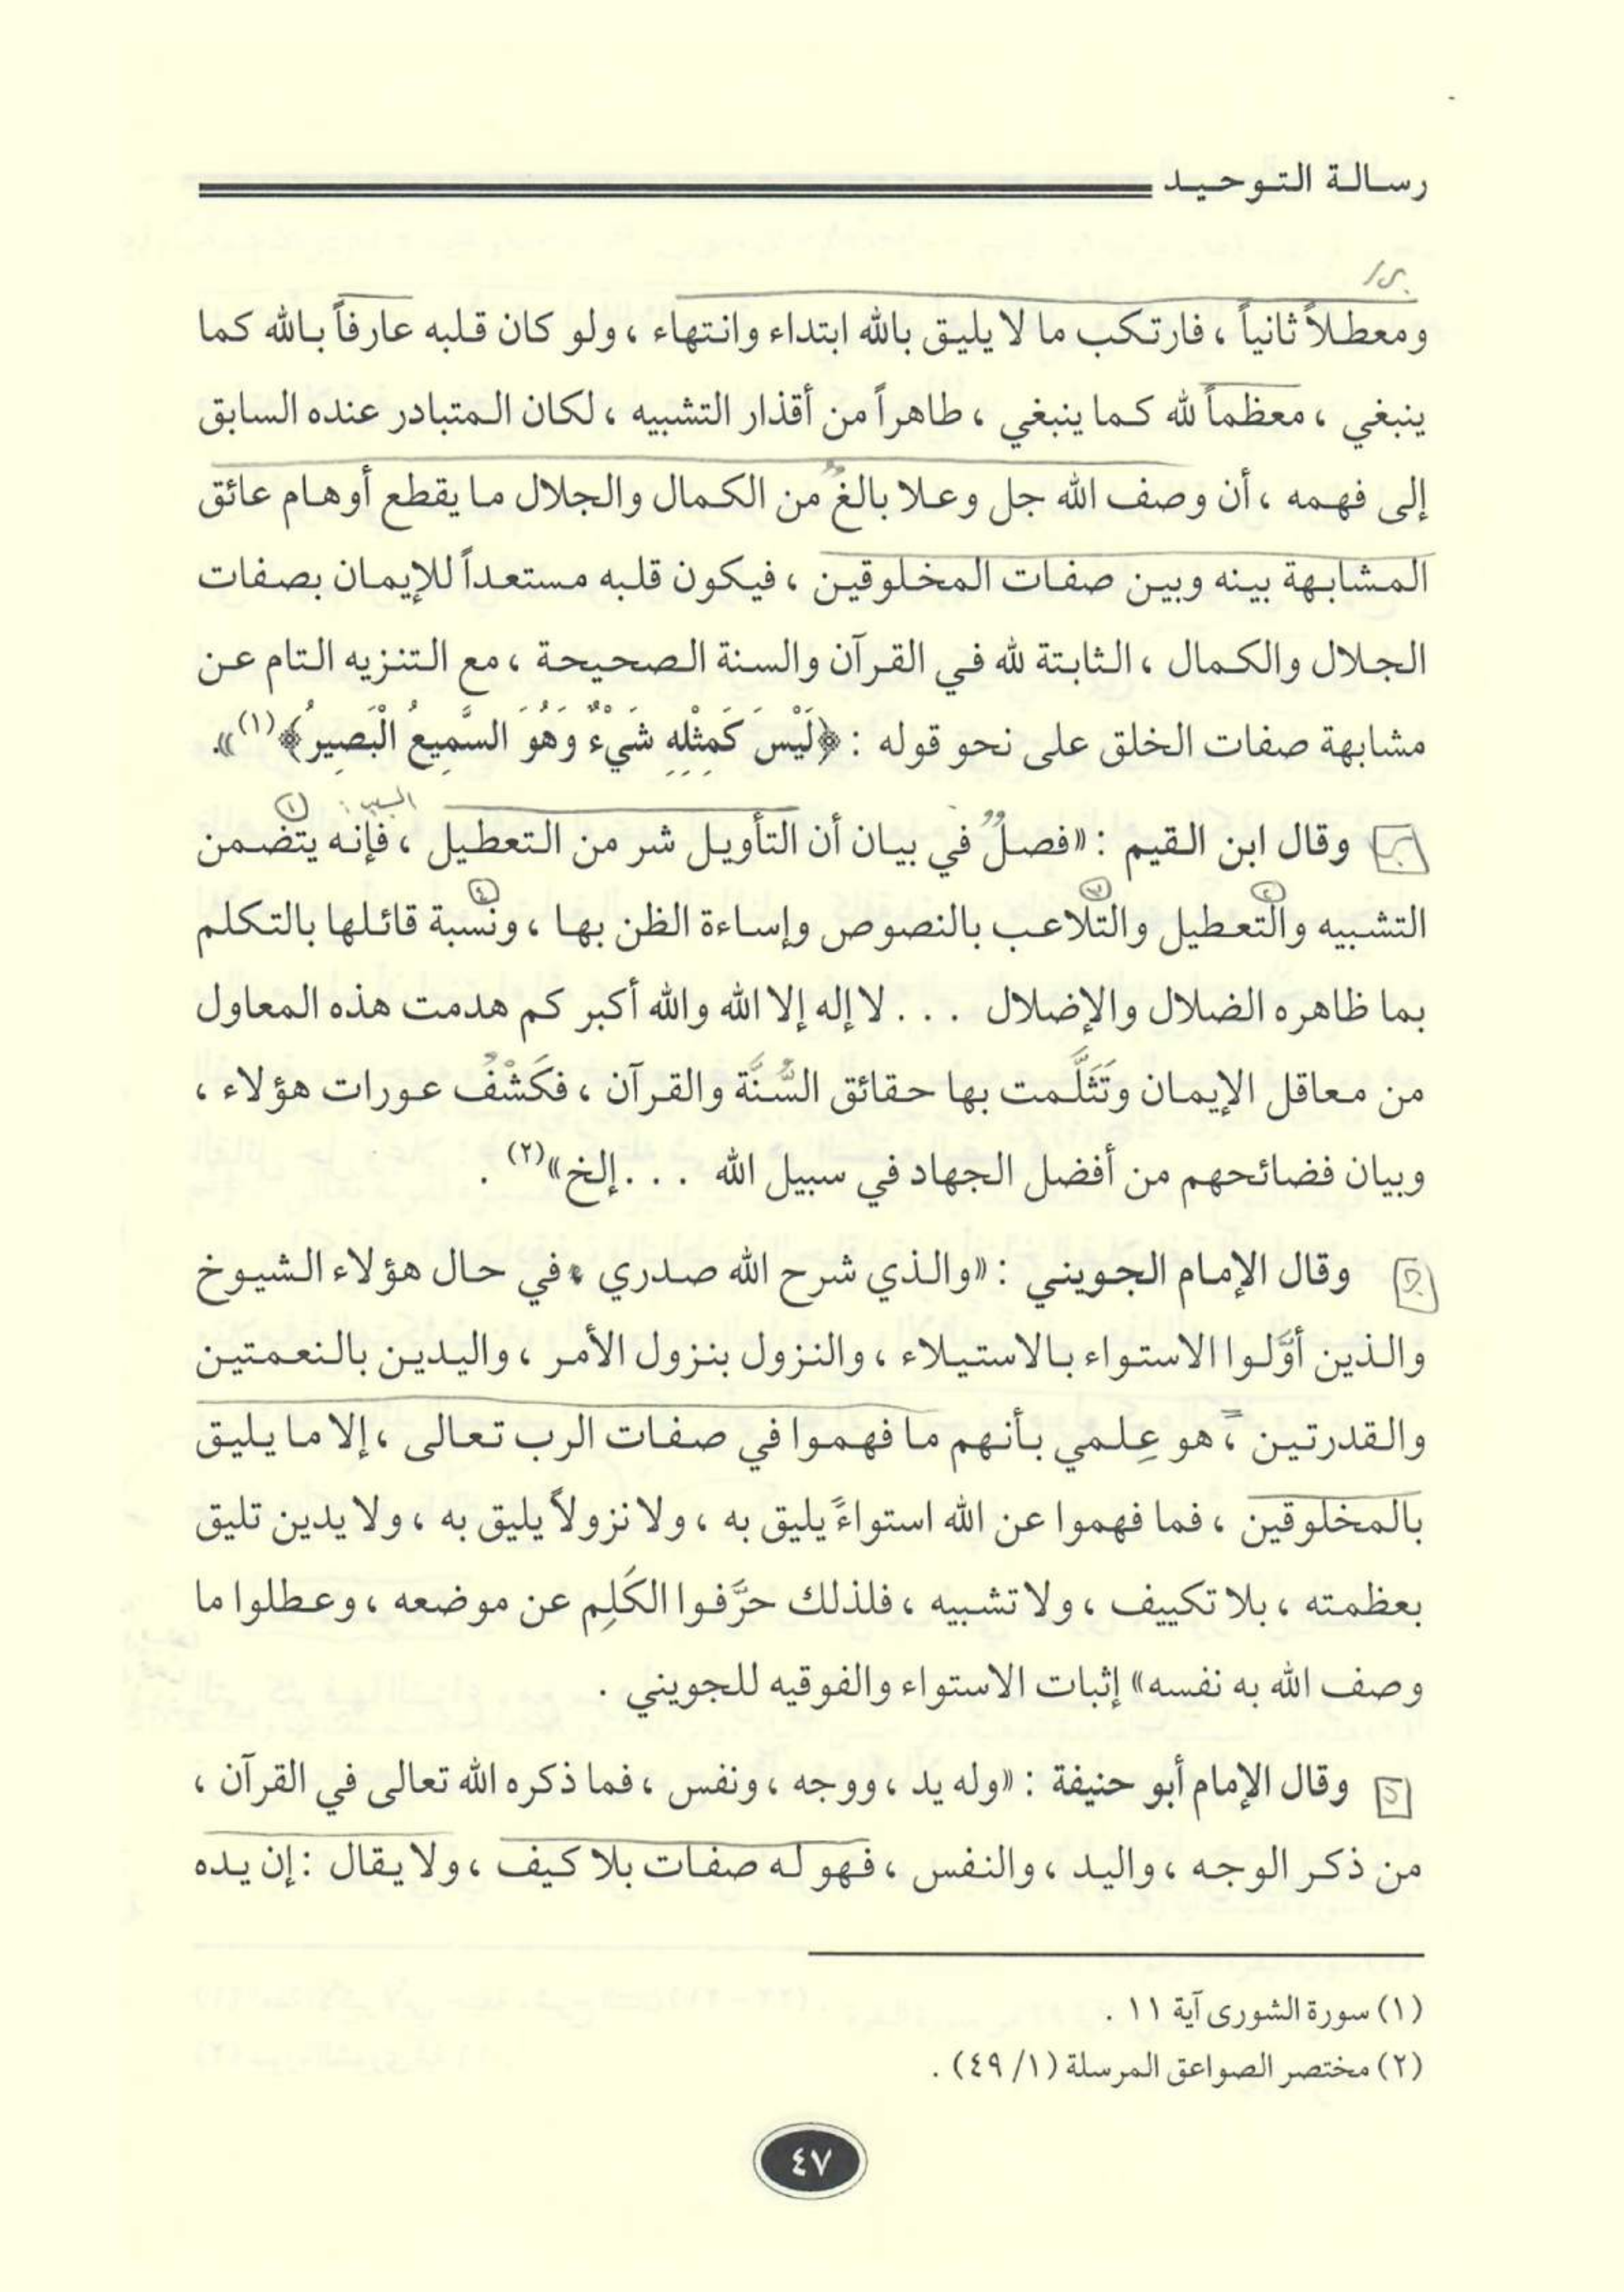 رسالة التوحيد
ومعطلاً ثانياً ، فارتكب ما لا يليق بالله ابتداء وانتهاء ، ولو كان قلبه عارفاً بالله كما
ينبغي ، معظماً لله كما ينبغي ، طاهراً من أقذار التشبيه ، لكان المتبادر عنده السابق
إلى فهمه ، أن وصف الله جل وعلا بالغٌ من الكمال والجلال ما يقطع أوهام عائق
المشابهة بينه وبين صفات المخلوقين ، فيكون قلبه مستعداً للإيمان بصفات
الجلال والكمال ، الثابتة لله في القرآن والسنة الصحيحة ، مع التنزيه التام عن
مشابهة صفات الخلق على نحو قوله : ﴿لَيْسَ كَمِثْلِهِ شَيْءٌ وَهُوَ السَّمِيعُ الْبَصِيرُ﴾(١)».
السبب :
وقال ابن القيم : «فصلٌ في بيان أن التأويل شر من التعطيل ، فإنه يتضمن
التشبيه والتعطيل والتلاعب بالنصوص وإساءة الظن بها ، ونسبة قائلها بالتكلم
بما ظاهره الضلال والإضلال . . . لا إله إلا الله والله أكبر كم هدمت هذه المعاول
من معاقل الإيمان وتَثَلَّمت بها حقائق السُّنَّة والقرآن ، فكَشْفُ عورات هؤلاء ،
وبيان فضائحهم من أفضل الجهاد في سبيل الله . . . إلخ»(٢) .
وقال الإمام الجويني : «والذي شرح الله صدري ، في حال هؤلاء الشيوخ
والذين أوَّلوا الاستواء بالاستيلاء ، والنزول بنزول الأمر ، واليدين بالنعمتين
والقدرتين ، هو عِلمي بأنهم ما فهموا في صفات الرب تعالى ، إلا ما يليق
بالمخلوقين ، فما فهموا عن الله استواءً يليق به ، ولا نزولاً يليق به ، ولا يدين تليق
بعظمته ، بلا تكييف ، ولا تشبيه ، فلذلك حرَّفوا الكَلِم عن موضعه ، وعطلوا ما
وصف الله به نفسه» إثبات الاستواء والفوقيه للجويني .
وقال الإمام أبو حنيفة : «وله يد ، ووجه ، ونفس ، فما ذكره الله تعالى في القرآن ،
من ذكر الوجه ، واليد ، والنفس ، فهو له صفات بلا كيف ، ولا يقال : إن يده
(١) سورة الشورى آية ١١ .
(٢) مختصر الصواعق المرسلة (١/ ٤٩) .
٤٧